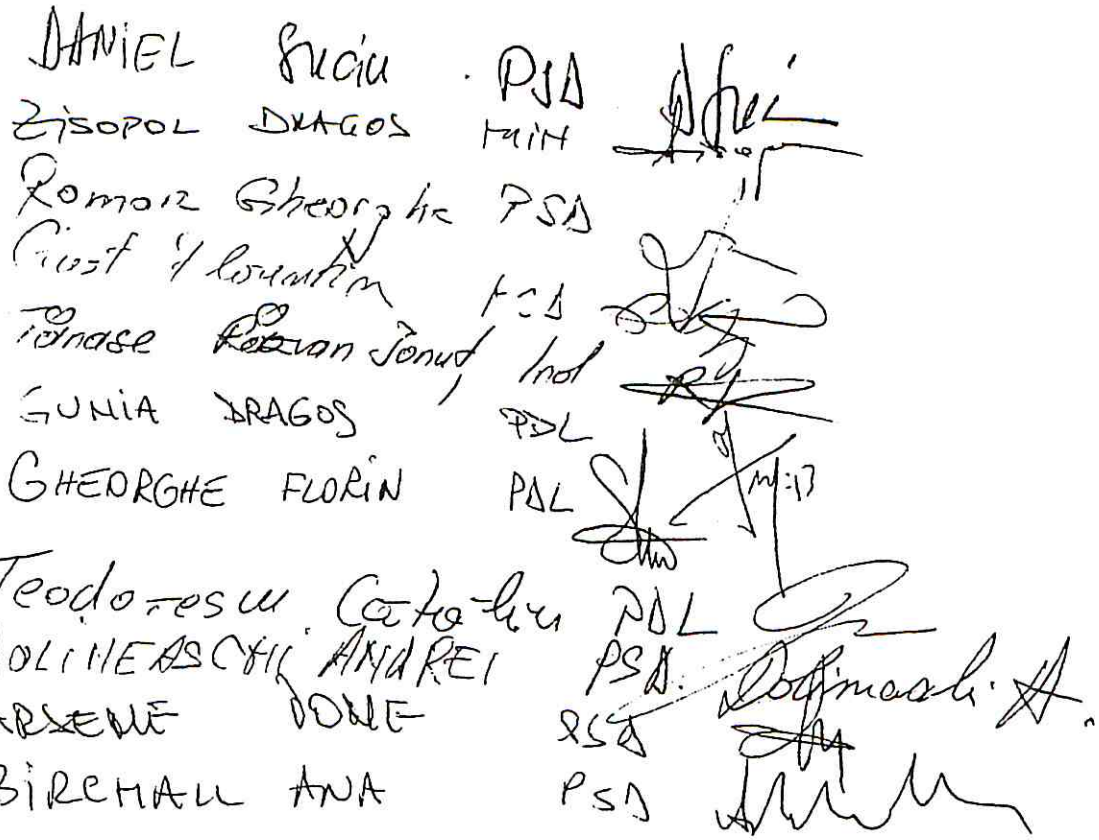 DANIEL Suciu PSD
ZISOPOL DRAGOS MIN
Roman Gheorghe PSD
Tănase Răzvan Ionuț Ind
GUNIA DRAGOS PDL
GHEORGHE FLORIN PDL
Teodorescu Cătălin PDL
DOLINEASCHI ANDREI PSD. Dolineaschi A.
ARSENE PSD
BIRCHALL ANA PSD